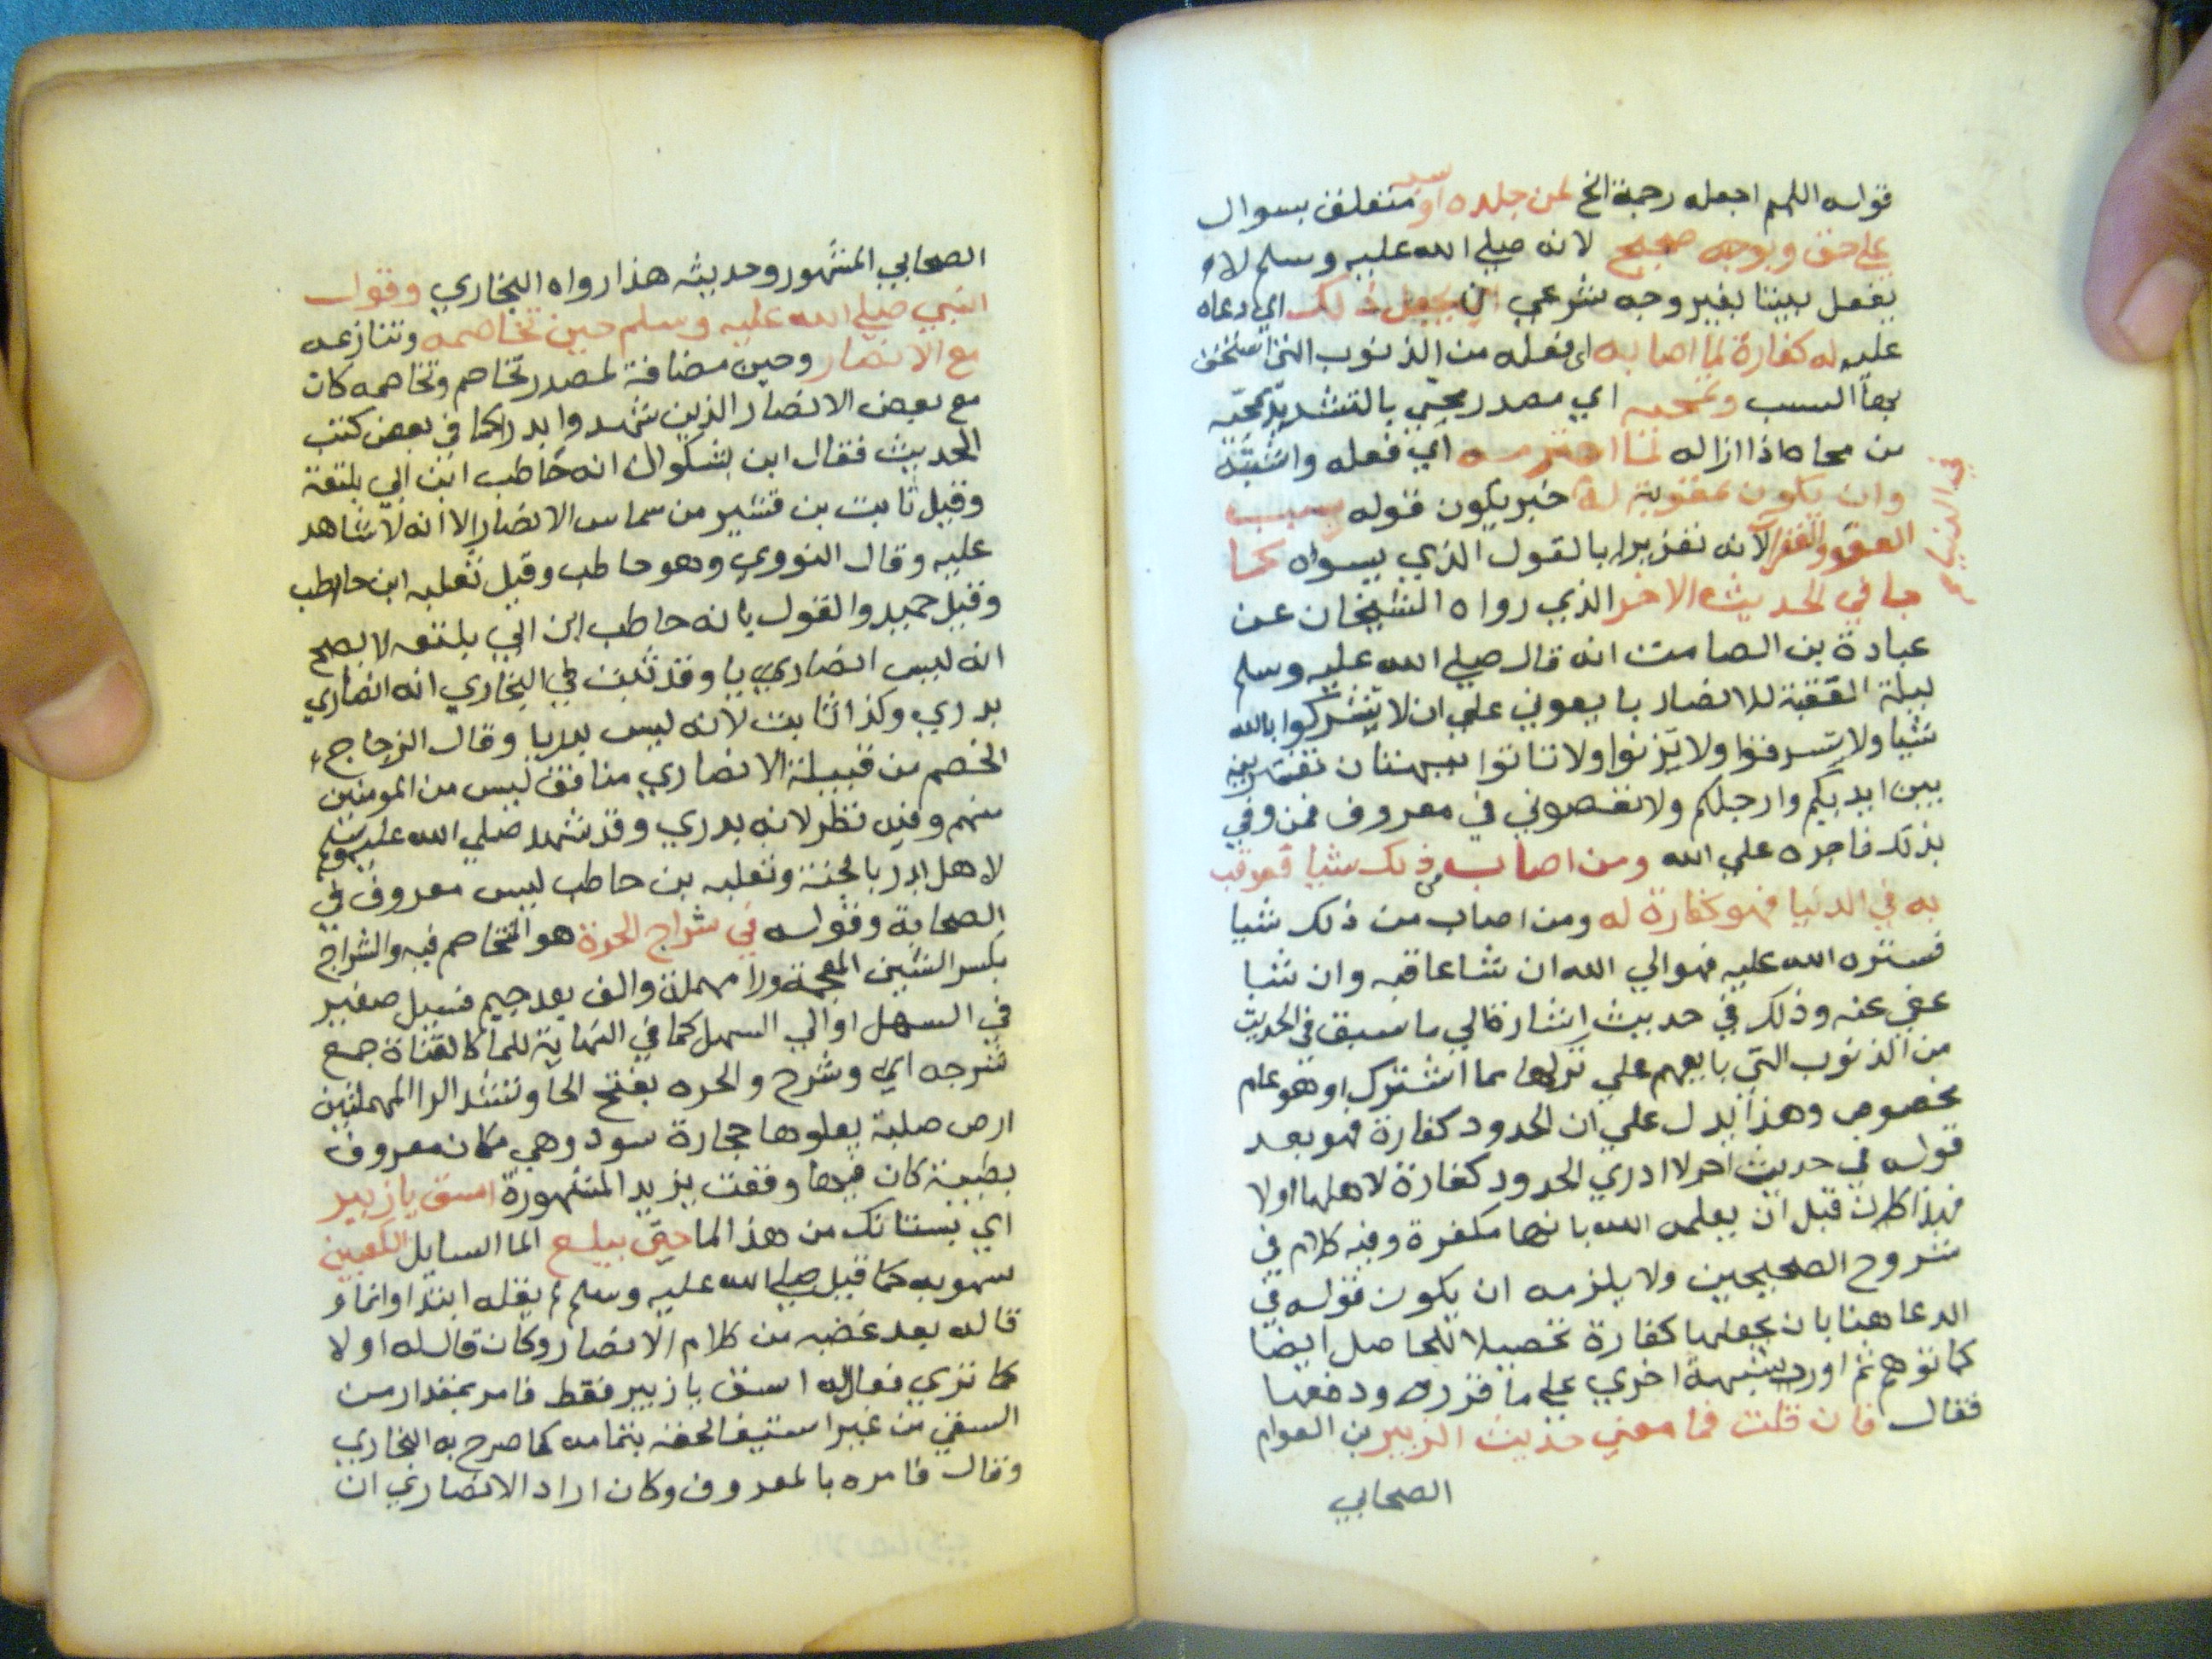 قوله اللهم اجعله رحمة الخ لمن جلده او سبه متعلق بسوال
على حق وبوجه صحيح لانه صلي الله عليه وسلم لا
يفعل بغير وجه شرعي ان يجعل ذلك اي دعاه
عليه له كفارة لما اصابه اى فعله من الذنوب التى استحق
بها السب وتمحيه اي مصدر محي بالتشديد
من محاه اذا ازاله لما اجترمه اي فعله واثبته
وان يكون عقوبة له خبر يكون قوله بسبب
العفو والغفران لانه نفز برا بالقول الذي بسواه كما
جا في الحديث الاخر الذي رواه الشيخان عن
في الدنيا
عبادة بن الصامت انه قال صلي الله عليه وسلم
ليلة العقبة للانصار بايعوني علي ان لا تشركوا بالله
شيا ولا تسرقوا ولا تزنوا ولا تاتوا ببهتان تفترونه
بين ايديكم وارجلكم ولا تعصوني في معروف فمن وفي
بذلك فاجره علي الله ومن اصاب من ذلك شيا فعوقب
به في الدنيا فهو كفارة له ومن اصاب من ذلك شيا
فستره الله عليه فهو الي الله ان شا عاقبه وان شا
عفي عنه وذلك في حديث اشارة الي ما سبق في الحديث
من الذنوب التي بايعهم علي تركها مما اشترك او هو عام
مخصوص وهذا يدل علي ان الحدود كفارة فهو بعد
قوله في حديث اخر لا ادري الحدود كفارة لاهلها او لا
فهذا كان قبل ان يعلمه الله بانها مكفرة وفيه كلام في
شروح الصحيحين ولا يلزمه ان يكون قوله في
الدعا هنا بان يجعلها كفارة تحصيلا للحاصل ايضا
كما توهم ثم اورد شبهة اخري علي ما قرره ودفعها
فقال فان قلت فما معني حديث الزبير بن العوام
الصحابي
الصحابي المشهور وحديثه هذا رواه البخاري وقول
النبي صلي الله عليه وسلم حين تخاصمه وتنازعه
مع الانصار وحين مضافة لمصدر تخاصم وتخاصمه كان
مع بعض الانصار الذين شهدوا بدرا كما في بعض كتب
الحديث فقال ابن بشكوال انه حاطب ابن ابي بلتعة
وقيل ثابت بن قيس من سماس الانصار الا انه لا شاهد
عليه وقال النووي وهو حاطب وقيل ثعلبه ابن حاطب
وقيل حميد والقول بانه حاطب ابن ابي بلتعه لا يصح
انه ليس انصاريا وقد ثبت في البخاري انه انصاري
بدري وكذا ثابت لانه ليس بدريا وقال الزجاج
الخصم من قبيلة الانصاري منافق ليس من المومنين
منهم وفيه نظر لانه بدري وقد شهد صلي الله عليه وسلم
لاهل بدر بالجنة وثعلبه بن حاطب ليس معروف في
الصحابة وقوله في شراج الحرة هو المتخاصم فيه والشراج
بكسر الشين المعجمة ورا مهملة والف بعد جيم مسيل صغير
في السهل او الي السهل كما في النهاية للما كالقناة جمع
شرجه اي وشرج والحره بفتح الحا وتشد الرا المهملتين
ارض صلبة يعلوها حجارة سود وهي مكان معروف
بطيبة كان فيها وقعت يزيد المشهورة اسق يا زبير
اي بستانك من هذ الما حتي يبلغ الما السايل الكعبين
سهوبه كما قيل صلي الله عليه وسلم لم يقله ابتدا وانما
قاله بعد غضبه من كلام الانصار وكان قال له اولا
كما تري فقال له اسق يا زبير فقط فامر بمقدار من
السقي من غير استيفا لحقه بتمامه كما صرح به البخاري
وقال فامره بالمعروف وكان اراد الانصاري ان